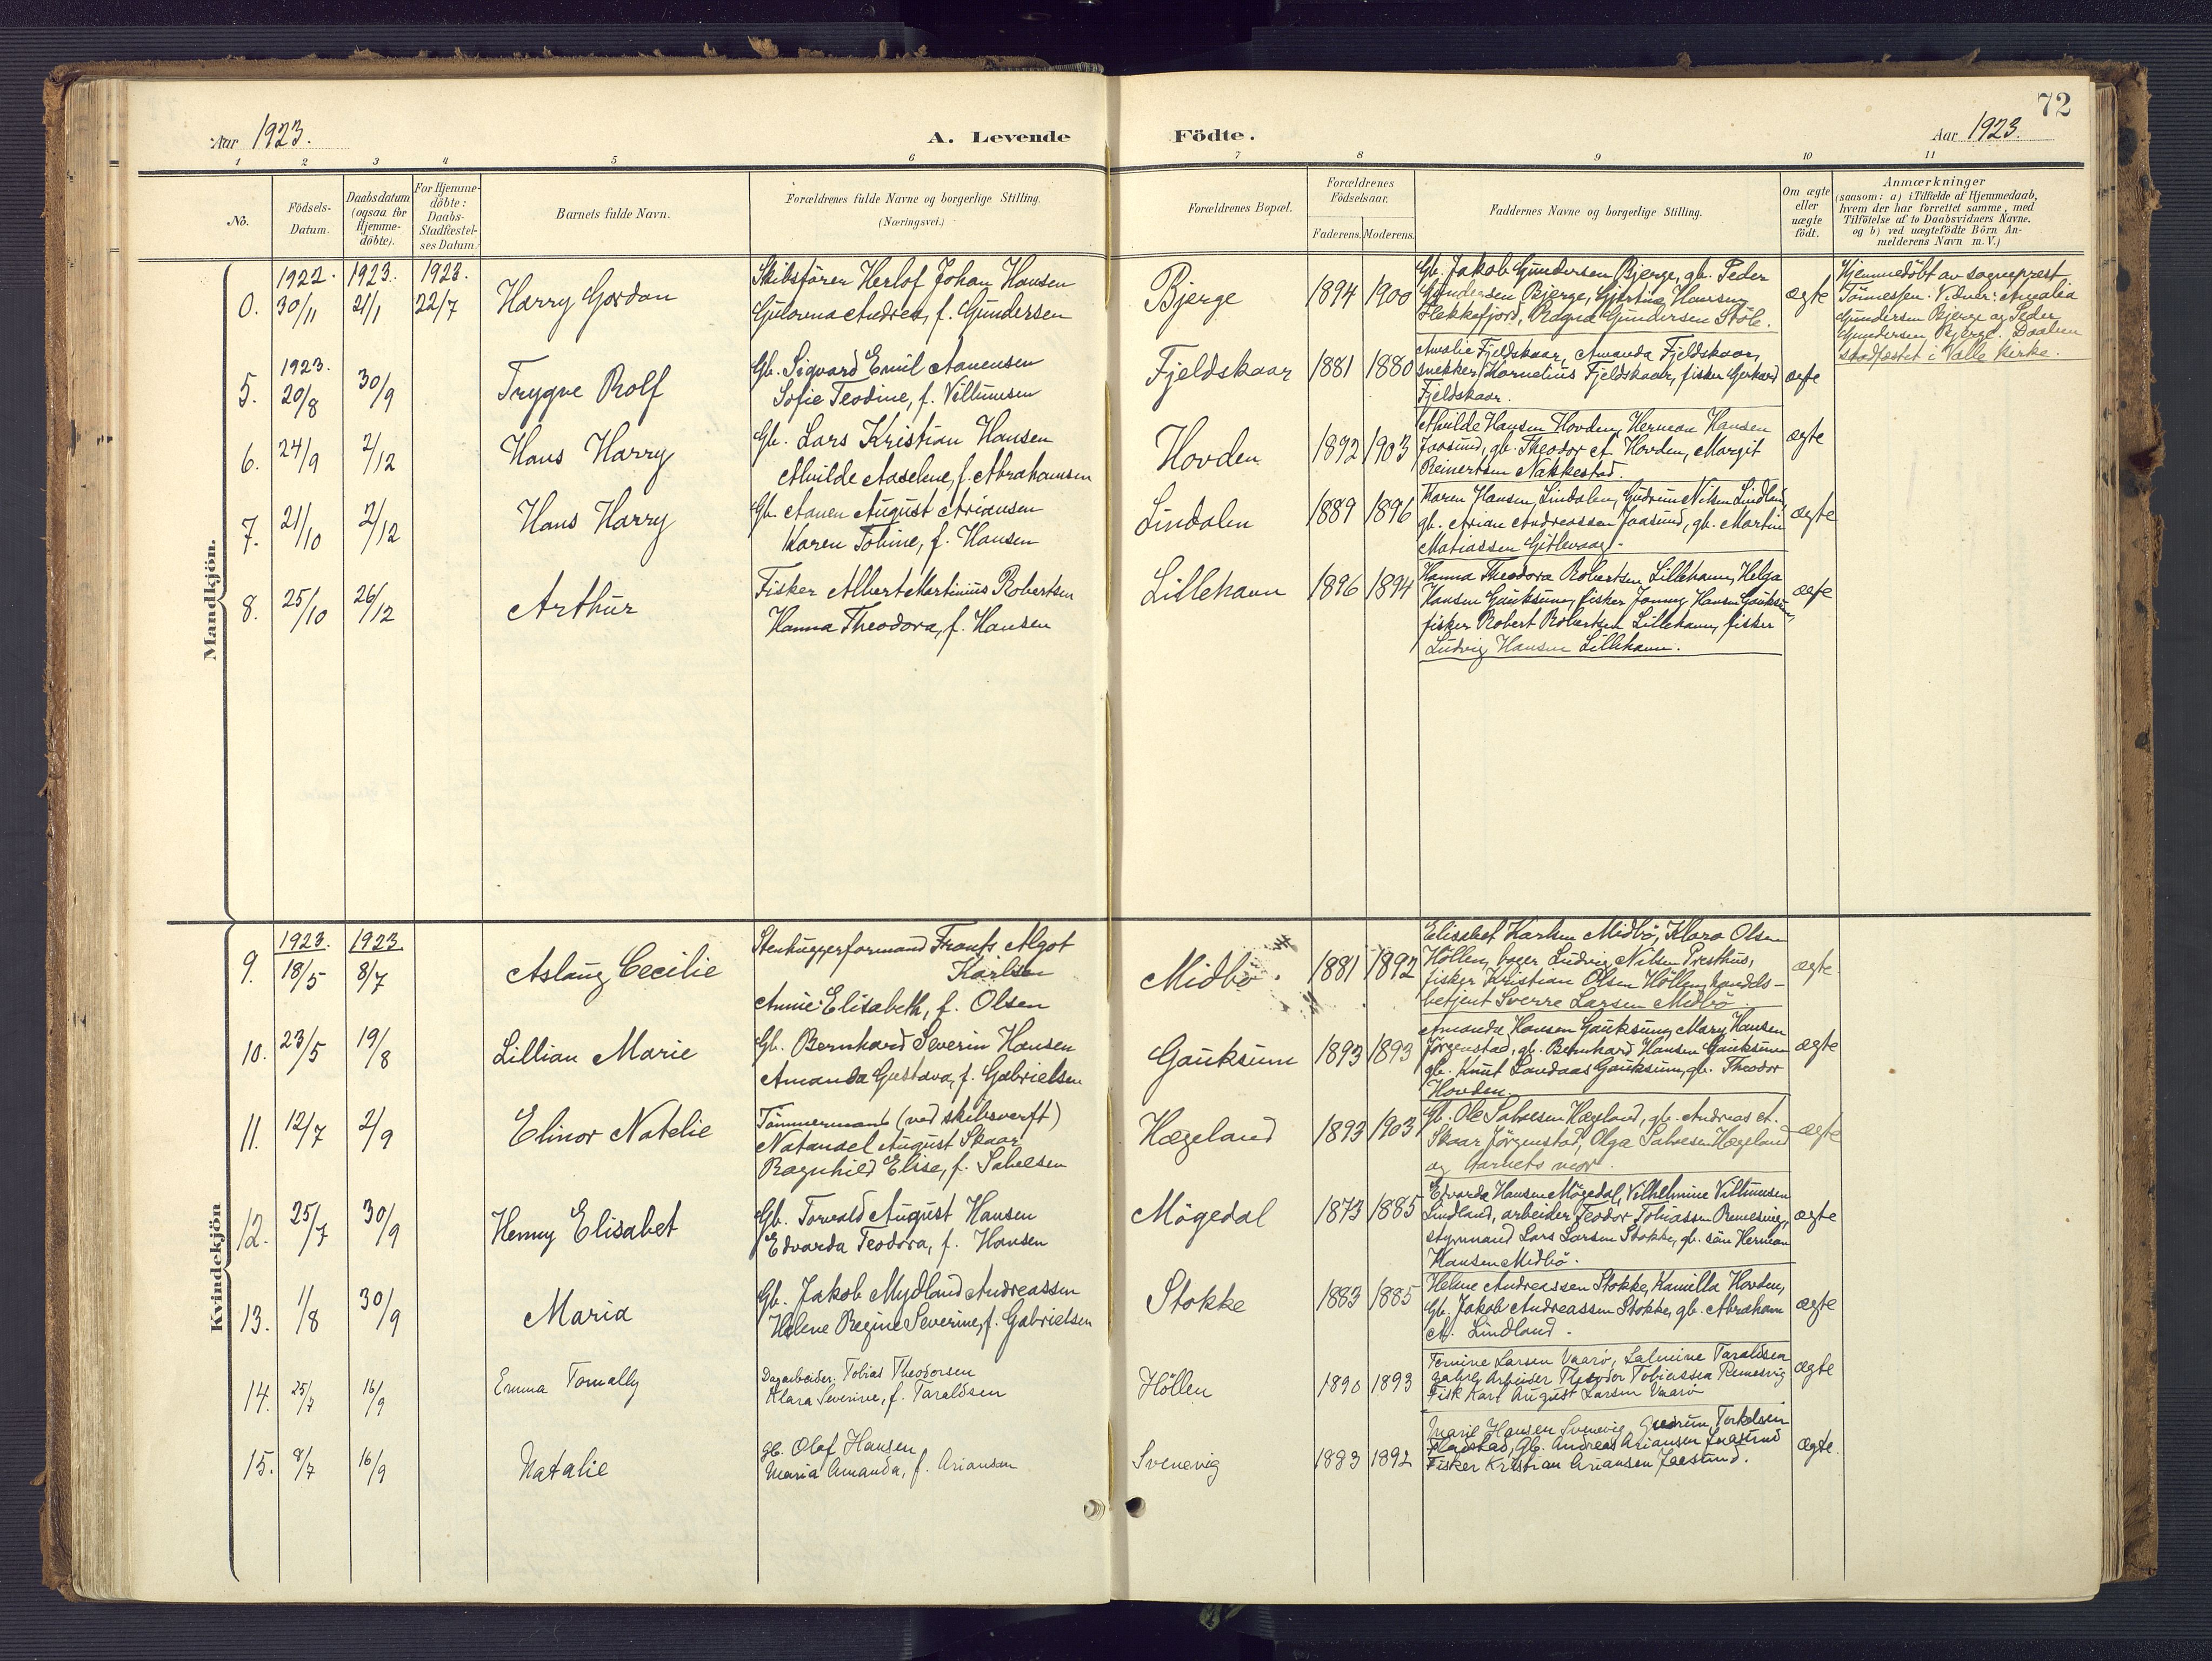 72
Aar 1923.
A. Levende Födte.
Aar 1923.
1 2 3 4 5 6 7 8 9 10 11
No.
Födsels-
Datum.
Daabsdatum
(ogsaa for
Hjemme-
döbte).
For Hjemme-
döbte:
Daabs-
Stadfæstel-
ses Datum.
Barnets fulde Navn.
Forældrenes fulde Navne og borgerlige Stilling.
(Næringsvei.)
Forældrenes Bopæl.
Forældrenes
Födselsaar.
Faderens. Moderens.
Faddernes Navne og borgerlige Stilling.
Om ægte
eller
uægte
födt.
Anmærkninger
(saasom: a) i Tilfælde af Hjemmedaab,
hvem der har forrettet samme, med
Tilföielse af to Daabsvidners Navne.
og b) ved uægtefödte Börn An-
melderens Navn m. V.)
Mandkjön.
1922. 1923. 1923.
0. 30/11 21/1 22/7
Harry Gordon
Skibsfører Herlof Johan Hansen
Gulorina Andrea, f. Gundersen
Bjerge
1894 1900
Gb. Jakob Gundersen Bjerge, gb. Peder
Gundersen Bjerge, Gjertine Hansen
Flekkefjord, Ragna Gundersen Stöle.
ægte
Hjemmedöbt av sogneprest
Tönnessen. Vidner: Amalia
Gundersen Bjerge og Peder
Gundersen Bjerge. Daaben
stadfæstet i Valle kirke.
1923.
5. 20/8 30/9
Trygve Rolf
Gb. Sigvard Emil Aanensen
Sofie Teodine, f. Villumsen
Fjeldskaar
1881 1880
Amalie Fjeldskaar, Amanda Fjeldskaar,
snekker Kornelius Fjeldskaar, fisker Gerhard
Fjeldskaar.
ægte
6. 24/9 2/12
Hans Harry
Gb. Lars Kristian Hansen
Alvilde Aaselene, f. Abrahamsen
Hovden
1892 1903
Alvilde Hansen Hovden, Herman Hansen
Jaasund, gb. Theodor A. Hovden, Margit
Reinertsen Nakkestad.
ægte
7. 21/10 2/12
Hans Harry
Gb. Aanen August Ariansen
Karen Toline, f. Hansen
Lindalen
1889 1896
Karen Hansen, Lindalen, Gudrun Nilsen Lindland,
gb. Arian Andreassen Jaasund, gb. Martin
Matiassen Gitlevaag.
ægte
8. 25/10 26/12
Arthur
Fisker Albert Martinius Robertsen
Hanna Theodora, f. Hansen
Lillehavn
1896 1894
Hanna Theodora Robertsen Lillehavn, Helga
Hansen Gauksum, fisker Hansen Gauksum,
fisker Robert Robertsen Lillehavn, fisker
Ludvig Hansen Lillehavn.
ægte
Kvindekjön
1923. 1923
9. 18/5 8/7
Aslaug Cecilie
Stenhuggerformand Frants Algot
Karlsen
Annie Elisabeth, f. Olsen
Midbö.
1881 1892
Elisabet Karlsen Midbö, Klara Olsen
Höllen, Ludvig Nilsen Presthus,
fisker Kristian Olsen Höllen, handels-
betjent Sverre Larsen Midbö.
ægte
10. 23/5 19/8
Lillian Marie
Gb. Bernhard Severin Hansen
Amanda Gustava, f. Gabrielsen
Gauksum
1893 1893
Amanda Hansen Gauksum, Mary Hansen
Jörgenstad, gb. Bernhard Hansen Gauksum
gb. Knut Landaas Gauksum, gb. Theodor
Hovden
ægte
11. 12/7 2/9
Elinor Natelie
Tömmermand (ved skibsverft)
Natanael August Skaar
Ragnhild Elise, f. Salvesen
Hægeland
1893 1903
Gb. Ole Salvesen Hægeland, gb. Andreas A.
Skaar Jörgenstad, Olga Salvesen Hægeland
og barnets mor.
ægte
12. 25/7 30/9
Henny Elisabet
Gb. Torvald August Hansen
Edvarda Teodora, f. Hansen
Mögedal
1873 1885
Edvarda Hansen Mögedal, Vilhelmine Villumsen
Lindland, arbeider Teodor Tobiassen Remesvig,
styrmand Lars Larsen Stokke, gb. sön Herman
Hansen Midbö.
ægte
13. 1/8 30/9
Maria
Gb. Jakob Mydland Andreassen
Helene Regine Severine, f. Gabrielsen
Stokke
1883 1885
Helene Andreassen Stokke, Kamilla Hovden,
Gb. Jakob Andreassen Stokke, gb. Abraham
A. Lindland.
ægte
14. 25/7 16/9
Emma Tomally
Dagarbeider. Tobias Theodorsen
Klara Severine, f. Taraldsen
Höllen
1890 1893
Larsen Vaarö, Salmine Taraldsen
Arbeider Theodor Tobiassen Remesvig
Fisk Karl August Larsen Vaarö
ægte
15. 8/7 16/9
Natalie
gb. Olaf Hansen
Maria Amanda, f. Ariansen
Svenevig
1883 1892
Marie Hansen Svenevig Gudrun Torkelsen
Gb. Andreas Ariansen Jaasund
Fisker Kristian Ariansen Jaasund.
ægte.